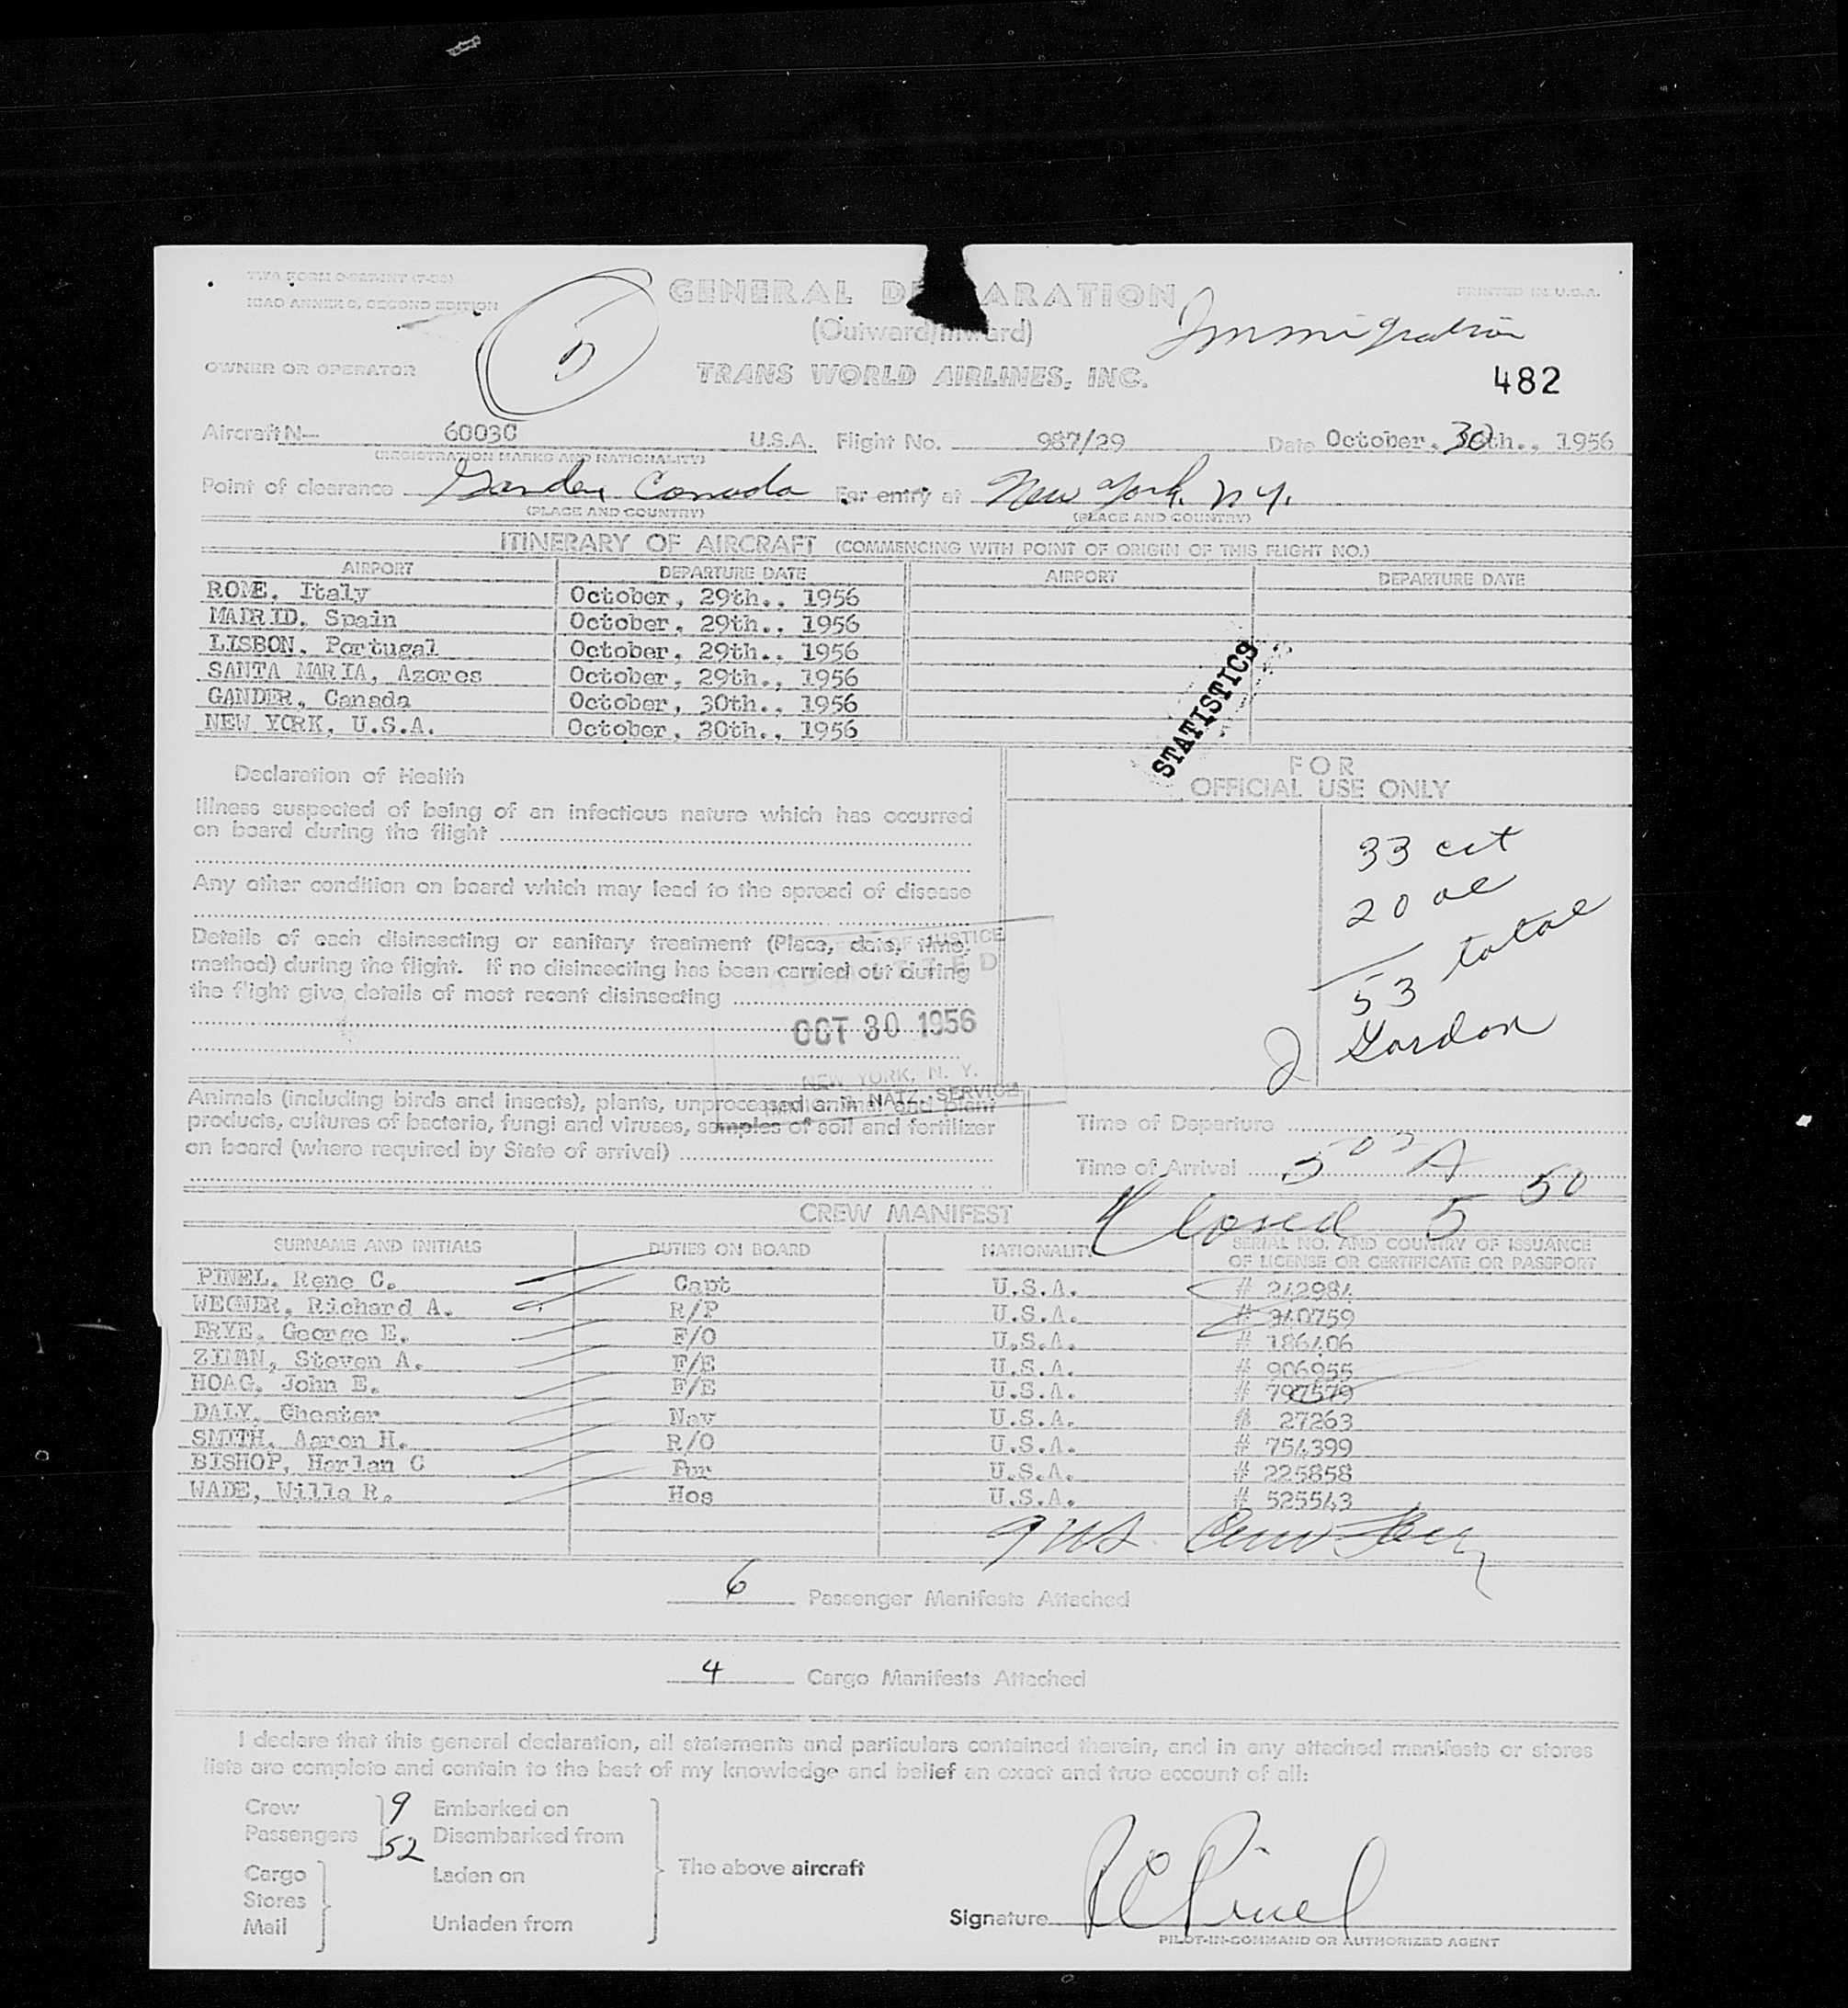 TWA FORM
ICAO ANNEX 9, SECOND EDITION
GENERAL DE ARATION
PRINTED IN U.S.A.
(Outward/Inward)
Immigration
OWNER OR OPERATOR
TRANS WORLD AIRLINES, INC.
482
Aircraft N— 6003C U.S.A. Flight No. 987/29 Date October, 30th., 1956
(REGISTRATION MARKS AND NATIONALITY)
Point of clearance Gander Canada For entry at New York, N.Y.
(PLACE AND COUNTRY) (PLACE AND COUNTRY)
ITINERARY OF AIRCRAFT (COMMENCING WITH POINT OF ORIGIN OF THIS FLIGHT NO.)
AIRPORT DEPARTURE DATE AIRPORT DEPARTURE DATE
ROME, Italy October, 29th., 1956
MADRID, Spain October, 29th., 1956
LISBON, Portugal October, 29th., 1956
SANTA MARIA, Azores October, 29th., 1956
GANDER, Canada October, 30th., 1956
NEW YORK, U.S.A. October, 30th., 1956
STATISTICS
Declaration of Health
FOR
OFFICIAL USE ONLY
Illness suspected of being of an infectious nature which has occurred
on board during the flight
Any other condition on board which may lead to the spread of disease
Details of each disinsecting or sanitary treatment (Place, date, time,
method) during the flight. If no disinsecting has been carried out during
the flight give details of most recent disinsecting
33 cit
20 al
53 total
J Gordon
OF JUSTICE
ADMITTED
OCT 30 1956
NEW YORK, N. Y.
NATZ. SERVICE
Animals (including birds and insects), plants, unprocessed animal and plant
products, cultures of bacteria, fungi and viruses, samples of soil and fertilizer
on board (where required by State of arrival)
Time of Departure
Time of Arrival 5 05 A
Closed 5 50
CREW MANIFEST
SURNAME AND INITIALS DUTIES ON BOARD NATIONALITY SERIAL NO. AND COUNTRY OF ISSUANCE
OF LICENSE OR CERTIFICATE OR PASSPORT
PINEL, Rene C. Capt U.S.A. # 242984
WEGNER, Richard A. R/P U.S.A. # 340759
FRYE, George E. F/O U.S.A. # 186406
ZIMAN, Steven A. F/E U.S.A. # 906955
HOAG, John E. F/E U.S.A. # 797579
DALY, Chester Nav U.S.A. # 27263
SMITH, Aaron H. R/O U.S.A. # 754399
BISHOP, Harlan C Pur U.S.A. # 225858
WADE, Willa R. Hos U.S.A. # 525543
6 Passenger Manifests Attached
4 Cargo Manifests Attached
I declare that this general declaration, all statements and particulars contained therein, and in any attached manifests or stores
lists are complete and contain to the best of my knowledge and belief an exact and true account of all:
Crew 9 Embarked on
Passengers 52 Disembarked from
Cargo Laden on
Stores
Mail Unladen from
The above aircraft
Signature R C Pinel
PILOT-IN-COMMAND OR AUTHORIZED AGENT